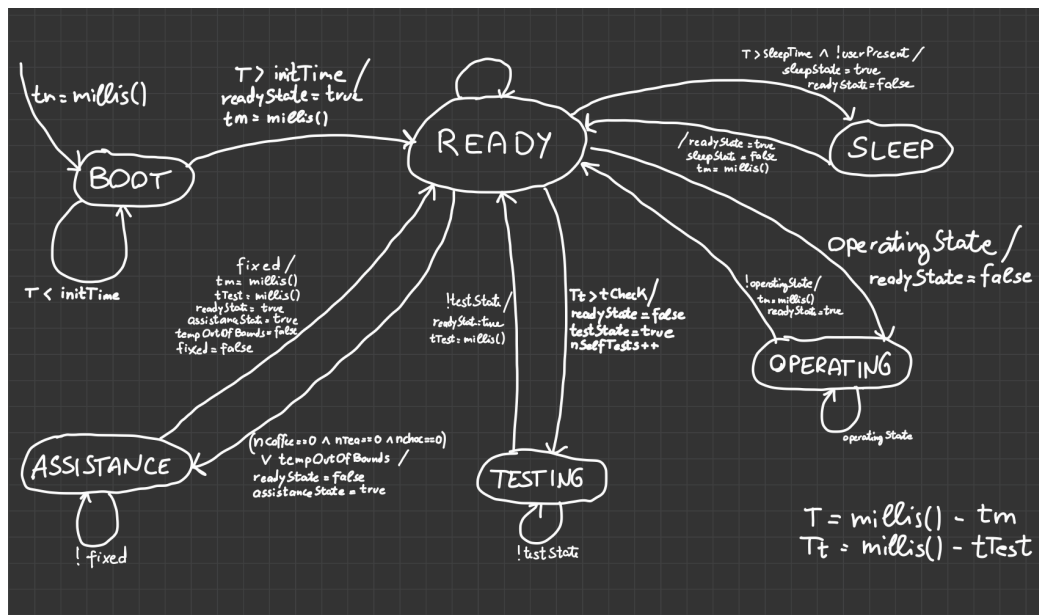 tm=millis()
BOOT
T < initTime
T > initTime /
readyState = true
tm = millis()
READY
T > sleepTime ∧ !userPresent /
sleepState = true
readyState = false
SLEEP
/ readyState = true
sleepState = false
tm = millis()
operatingState /
readyState = false
!operatingState /
tm = millis()
readyState = true
OPERATING
operatingState
fixed /
tm = millis()
tTest = millis()
readyState = true
assistanceState = true
tempOutOfBounds = false
fixed = false
!testState /
readyState = true
tTest = millis()
Tt > tCheck /
readyState = false
testState = true
nSelfTests++
(nCoffee==0 ∧ nTea==0 ∧ nchoc==0)
∨ tempOutOfBounds /
readyState = false
assistanceState = true
ASSISTANCE
! fixed
TESTING
!testState
T = millis() - tm
Tt = millis() - tTest